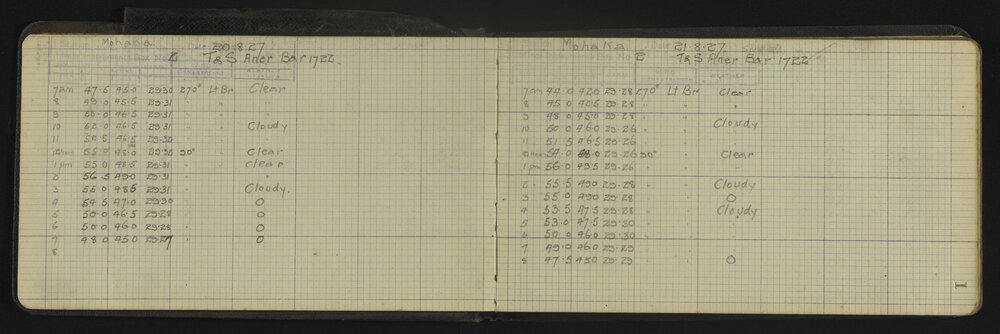 Mohaka Date 20.8.27
Σ T&S Aner Bar 1722
7am 47.5 45.0 29.30 270° Lt Br Clear
8 49.0 45.5 29.31 " " "
9 50.0 46.5 29.31 " "
10 52.0 46.5 29.31 " " Cloudy
11 52.5 46.5 29.30 " "
12 noon 55.0 48.0 29.30 90° " Clear
1 pm 55.0 48.5 29.31 " " Clear
2 56.5 49.0 29.31 " " "
3 55.0 48.5 29.31 " " Cloudy.
4 54.5 47.0 29.30 " " O
5 50.0 46.5 29.28 " " O
6 50.0 46.0 29.28 " " O
7 48.0 45.0 29.27 " " O
8
Mohaka 21.8.27
Σ T&S Aner Bar 1722
7am 44.0 42.0 29.28 270° Lt Br Clear
8 45.0 40.5 29.28 " " "
9 48.0 45.0 29.28 " "
10 50.0 46.0 29.26 " " Cloudy
11 51.5 46.5 29.26 " "
12 noon 54.0 48.0 29.26 90° " Clear
1 pm 56.0 49.5 29.26 " "
2 55.5 49.0 29.28 " " Cloudy
3 55.0 49.0 29.28 " " O
4 53.5 47.5 29.28 " " Cloudy
5 53.0 47.5 29.30 " "
6 50.0 46.0 29.30 " "
7 49.0 46.0 29.29
8 47.5 45.0 29.29 " " O
1